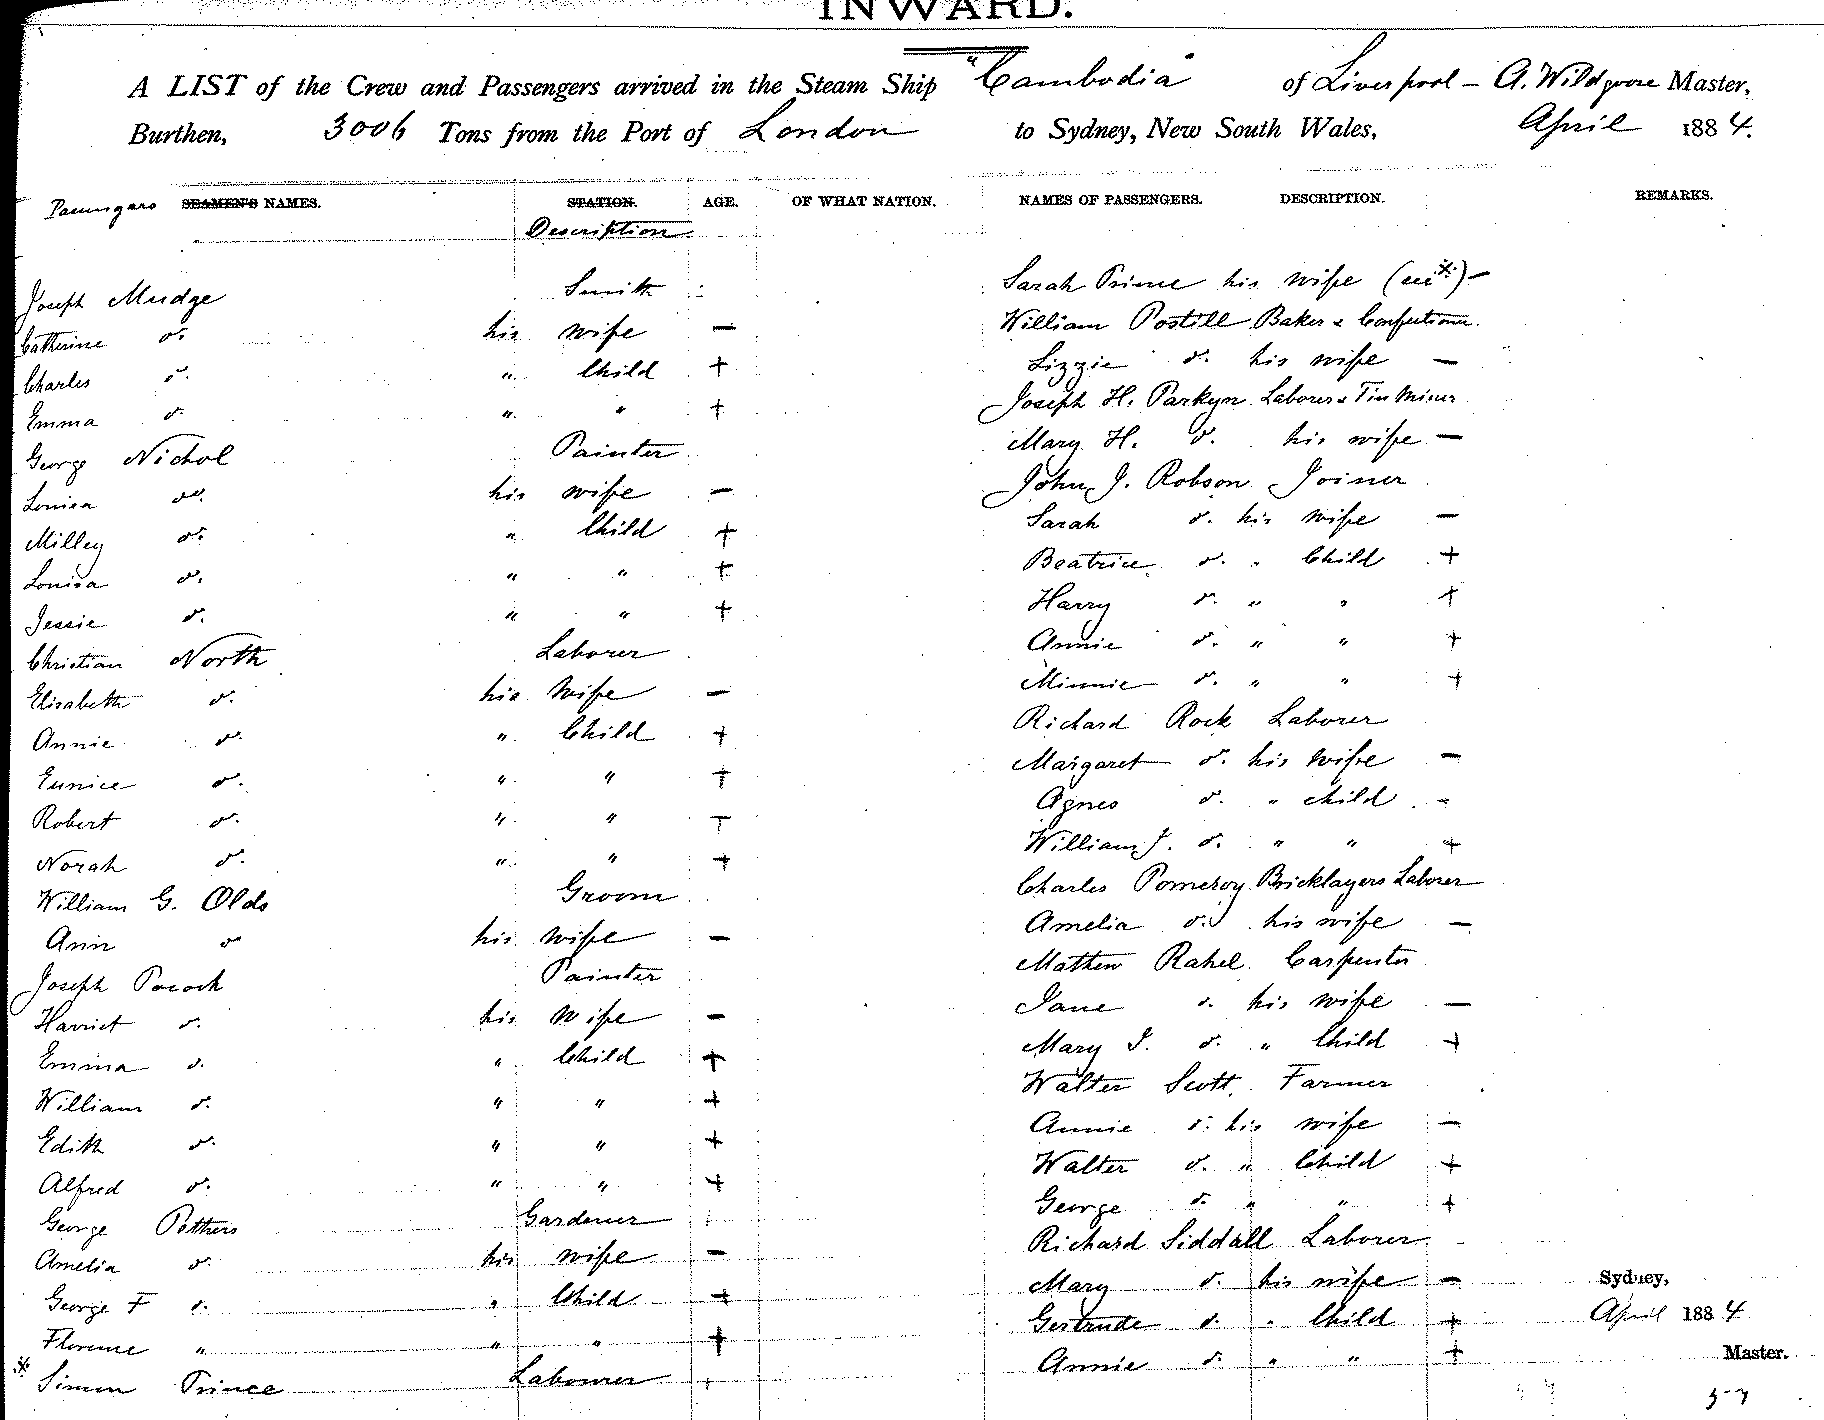 INWARD.
A LIST of the Crew and Passengers arrived in the Steam Ship "Cambodia" of Liverpool - A. Wildgoose Master,
Burthen, 3006 Tons from the Port of London to Sydney, New South Wales, April 1884.
Passengers SEAMEN'S NAMES. STATION. AGE. OF WHAT NATION. NAMES OF PASSENGERS. DESCRIPTION. REMARKS.
Description
Joseph Mudge Smith
Catherine do. his wife —
Charles do. " Child +
Emma do. " " +
George Nichol Painter
Louisa do. his wife —
Milley do. " Child +
Louisa do. " " +
Jessie do. " " +
Christian North Laborer
Elisabeth do. his wife —
Annie do. " Child +
Eunice do. " " +
Robert do. " " +
Norah do. " " +
William G. Olds Groom
Ann do his wife —
Joseph Pocock Painter
Harriet do. his wife —
Emma do. " Child +
William do. " " +
Edith do. " " +
Alfred do. " " +
George Gardener
Amelia do. his wife —
George F do. " Child +
Florence " " " +
* Simon Prince Labourer
Sarah Prince his wife —
William Postill Baker & Confectioner.
Lizzie do. his wife —
Joseph H. Parkyn Laborer & Tin Miner
Mary H. do. his wife —
John J. Robson Joiner
Sarah do. his wife —
Beatrice do. " Child +
Harry do. " " +
Annie do. " " +
Minnie do. " " +
Richard Rock Laborer
Margaret do. his wife —
Agnes do. " child -
William J. do. " " +
Charles Pomeroy Bricklayers Laborer
Amelia do. his wife —
Mathew Rahel Carpenter
Jane do. his wife —
Mary J. do. " Child +
Walter Scott Farmer
Annie do. his wife —
Walter do. " Child +
George do. " " +
Richard Siddall Laborer
Mary do. his wife —
Gertrude do. " Child +
Annie do. " " +
Sydney,
April 1884
Master.